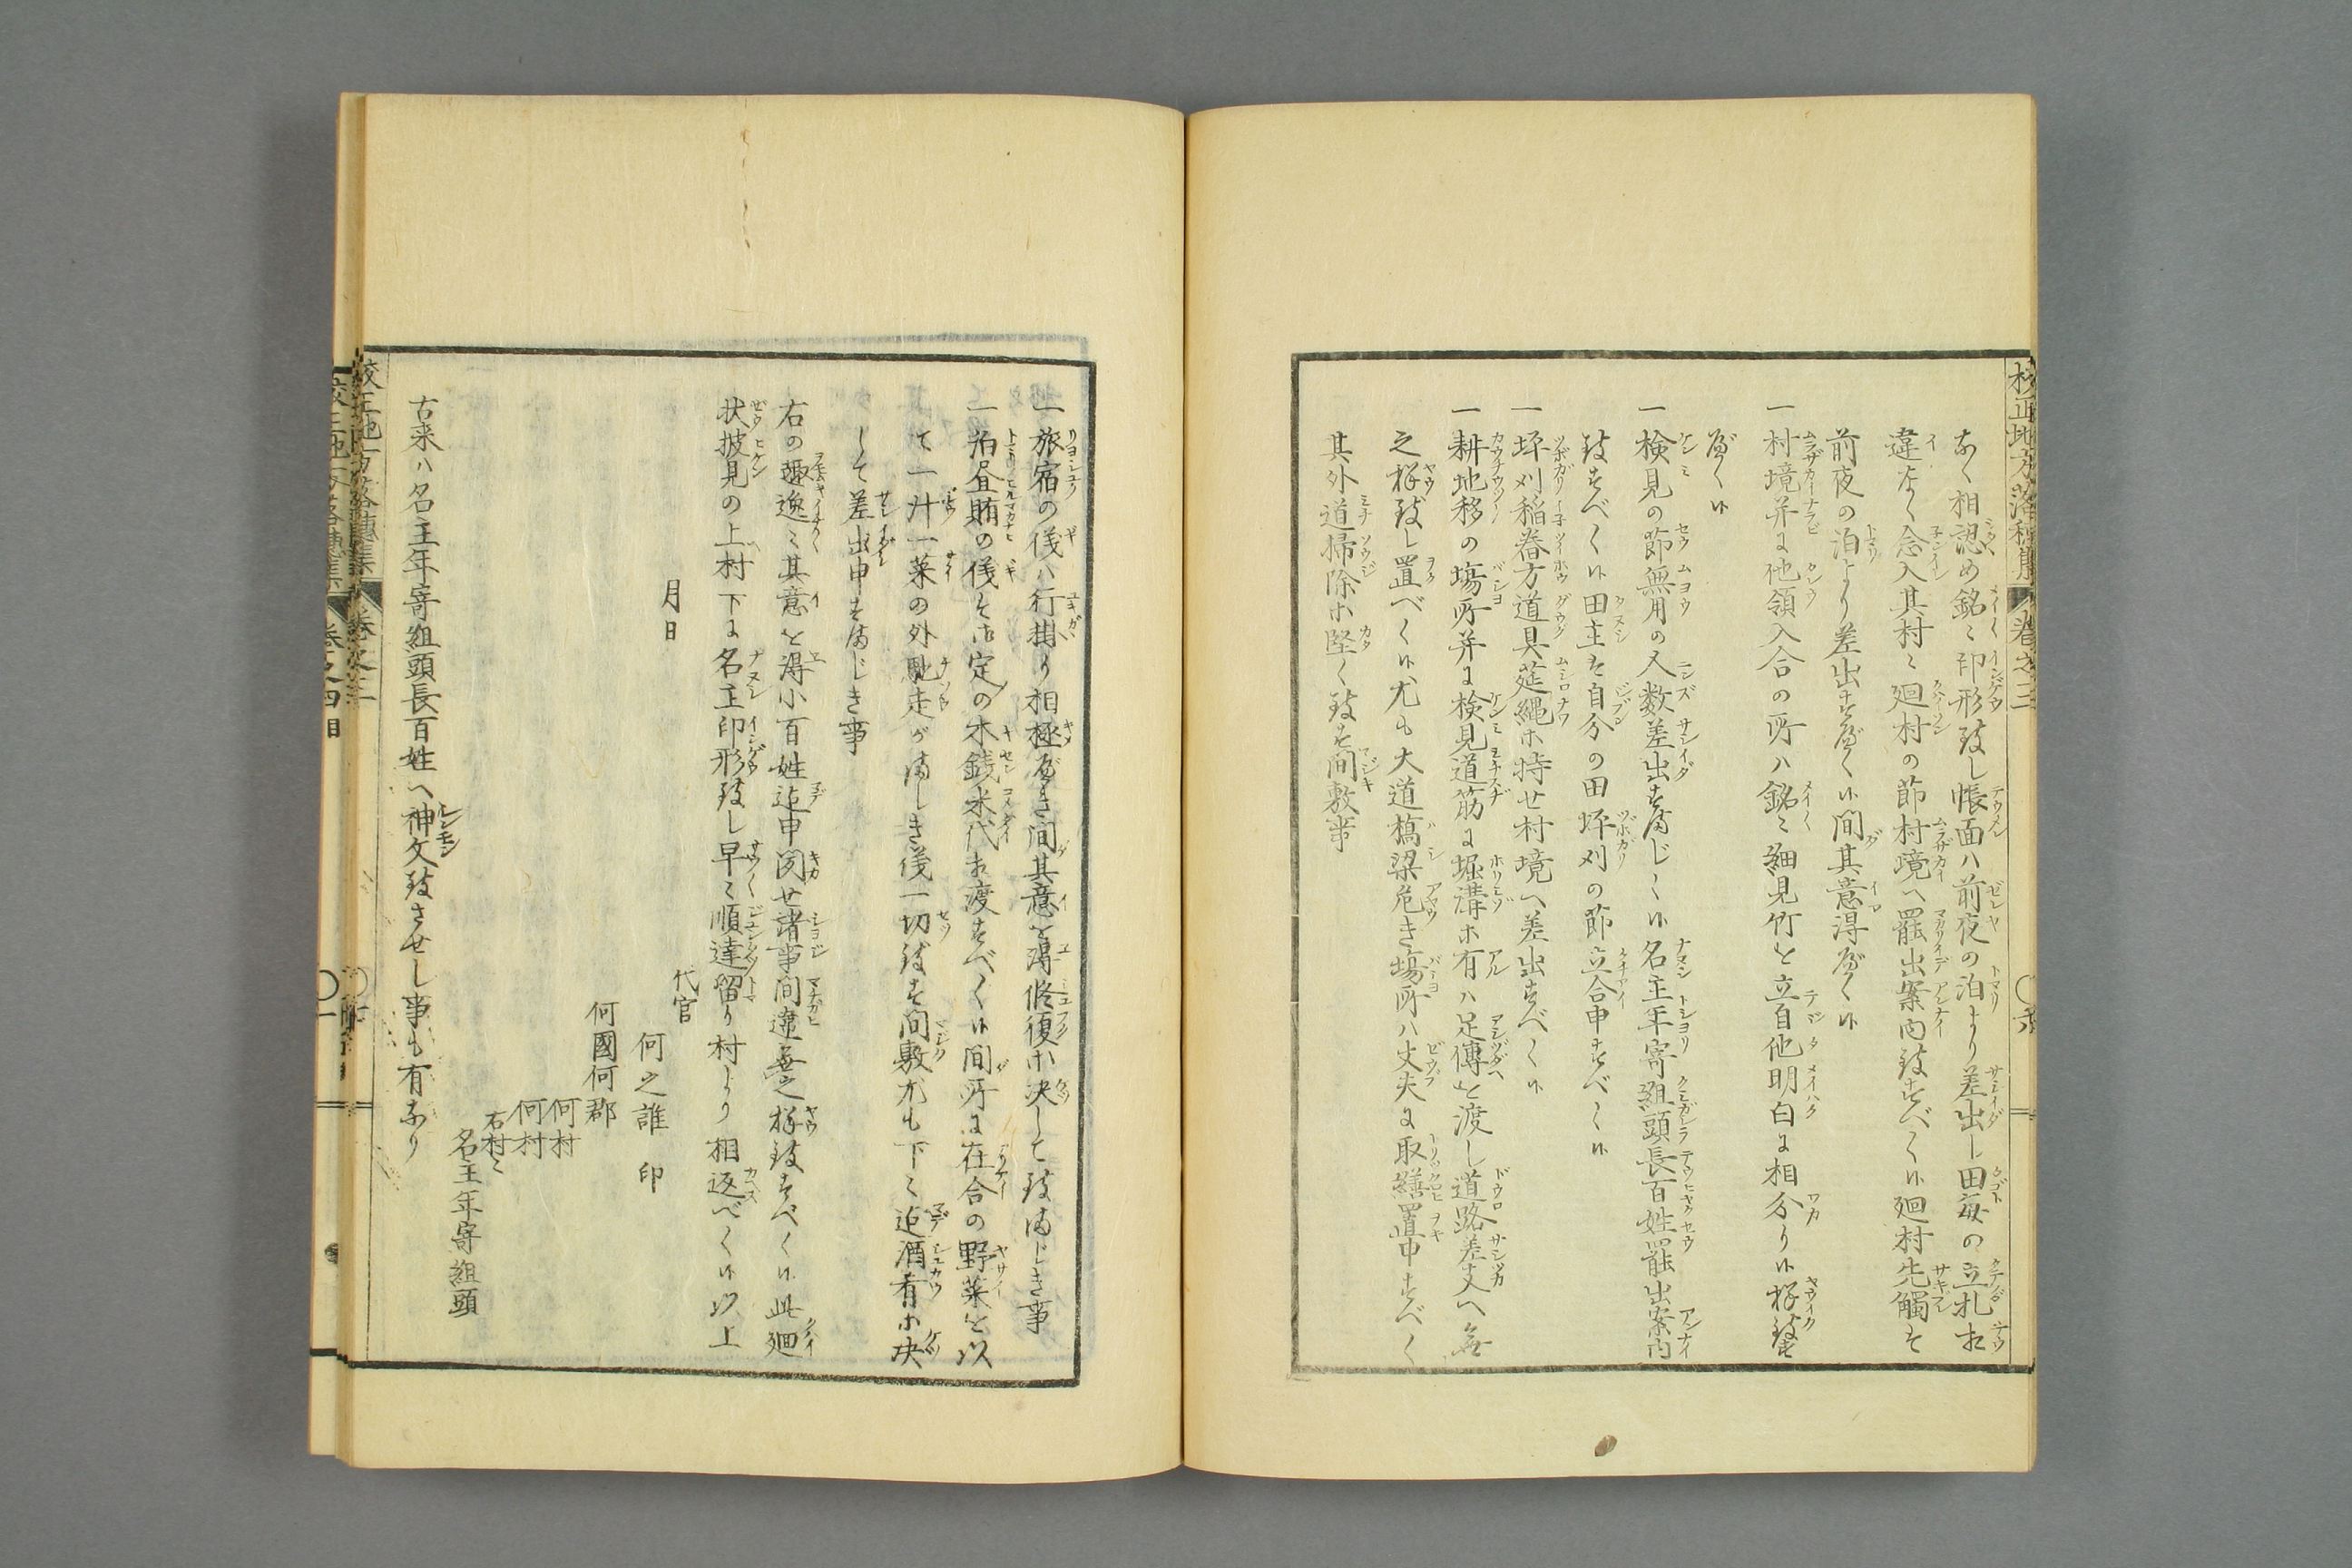 校正地方落穂集 巻之三
なく相認め銘〻印形致し帳面ハ前夜の泊より差出し田毎の立札等
違なく念入其村〻廻村の節村境へ罷出案内致すべく候廻村先觸を
前夜の泊より差出すべく候間其意得べく候
一村境并に他領入合の所ハ銘〻細見竹を立自他明白に相分り候様致
べく候
一検見の節無用の人数差出すまじく候名主年寄組頭長百姓罷出案内
致すべく候田主も自分の田坪刈の節立合申すべく候
一坪刈稲舂方道具莚縄等持せ村境へ差出すべく候
一耕地移の場所并に検見道筋に堀溝等有ハ足傳を渡し道路差支へ無
之様致し置べく候尤も大道橋梁危き場所ハ丈夫に取繕置申すべく
其外道掃除等堅く致す間敷事
一旅宿の儀ハ行掛り相極べき間其意を得修復等決して致まじき事
一泊昼賄の儀も御定の木銭米代相渡すべく候間所に在合の野菜を以
て一汁一菜の外馳走がましき儀一切致す間敷尤も下〻迄酒肴等決
して差出申すまじき事
右の趣逸〻其意を得小百姓迄申聞せ諸事間違無之様致すべく候此廻
状披見の上村下に名主印形致し早〻順達留り村より相返べく候以上
月日
代官
何之誰 印
何國何郡
何村
何村
右村〻
名主年寄組頭
古来ハ名主年寄組頭長百姓へ神文致させし事も有なり